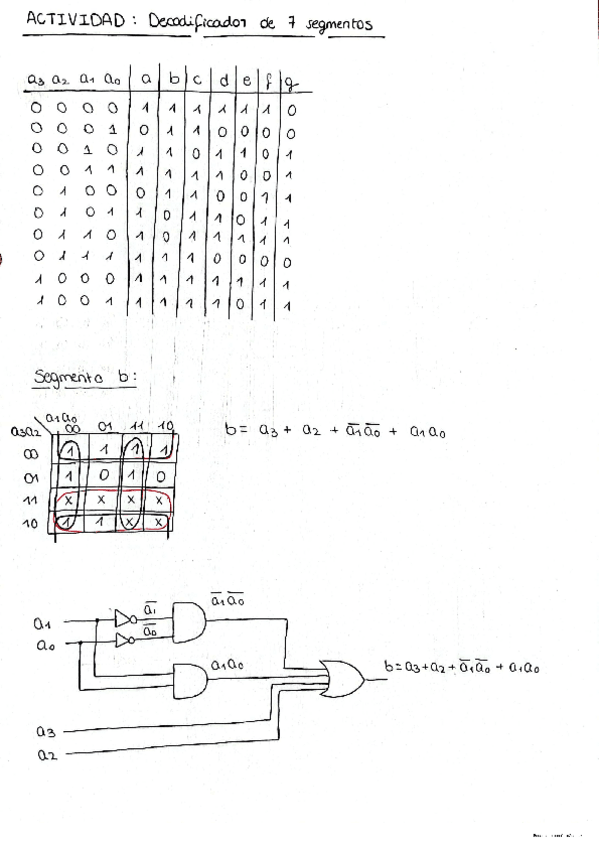 ACTIVIDAD: Decodificador de 7 segmentos
a3 a2 a1 a0 a b c d e f g
0 0 0 0 1 1 1 1 1 1 0
0 0 0 1 0 1 1 0 0 0 0
0 0 1 0 1 1 0 1 1 0 1
0 0 1 1 1 1 1 1 0 0 1
0 1 0 0 0 1 1 0 0 1 1
0 1 0 1 1 0 1 1 0 1 1
0 1 1 0 1 0 1 1 1 1 1
0 1 1 1 1 1 1 0 0 0 0
1 0 0 0 1 1 1 1 1 1 1
1 0 0 1 1 1 1 1 0 1 1
Segmento b:
a1a0
a3a2 00 01 11 10
00 1 1 1 1
01 1 0 1 0
11 x x x x
10 1 1 x x
b = a3 + a2 + a̅1a̅0 + a1a0
a1
a̅1
a̅1a̅0
a0
a̅0
a1a0
b=a3+a2+a̅1a̅0 + a1a0
a3
a2